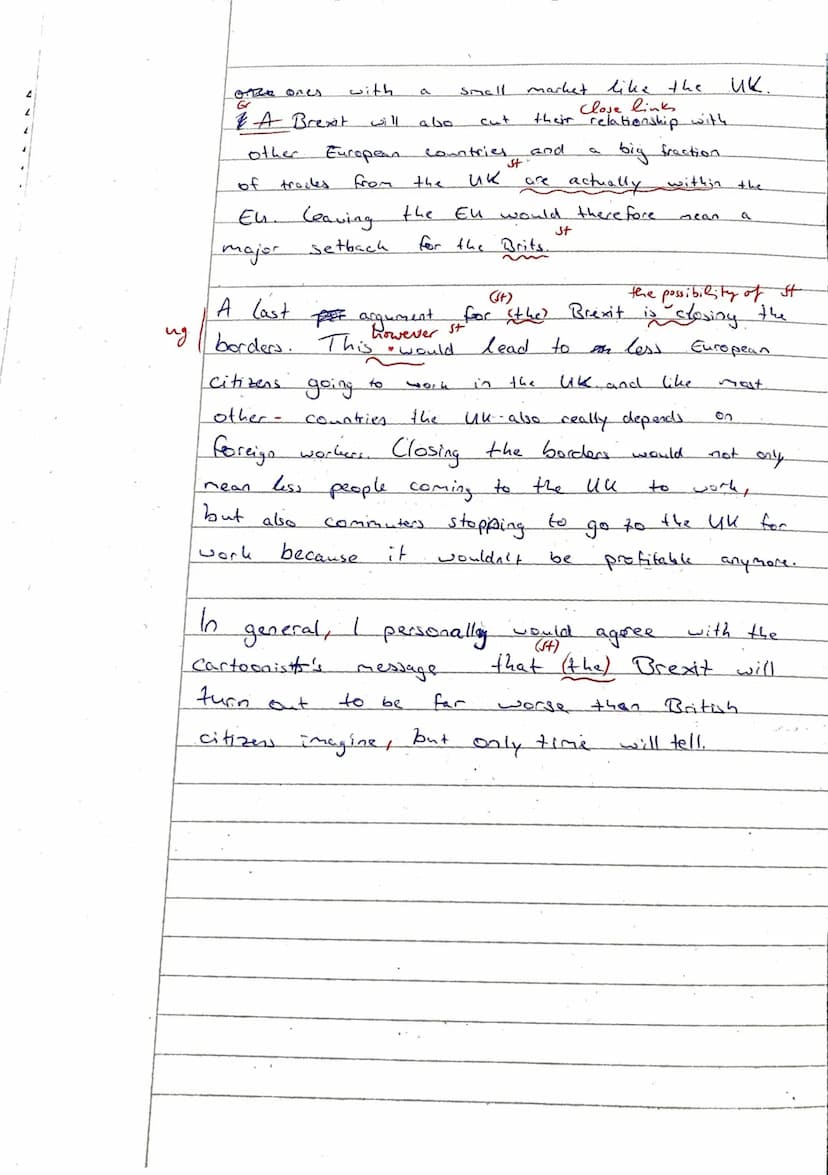 ones with a small market like the UK.
Gr close links
A Brexit will also cut their relationship with
other European countries and a big fraction
st
of trades from the UK are actually within the
EU. Leaving the EU would therefore mean a
st
major setback for the Brits.
(st) the possibility of st
A last argument for (the) Brexit is closing the
ug however st
borders. This would lead to less European
citizens going to work in the UK and like most
other countries the UK also really depends on
foreign workers. Closing the borders would not only
mean less people coming to the UK to work,
but also commuters stopping to go to the UK for
work because it wouldn't be profitable anymore.
In general, I personally would agree with the
(st)
cartoonist's message that (the) Brexit will
turn out to be far worse than British
citizens imagine, but only time will tell.